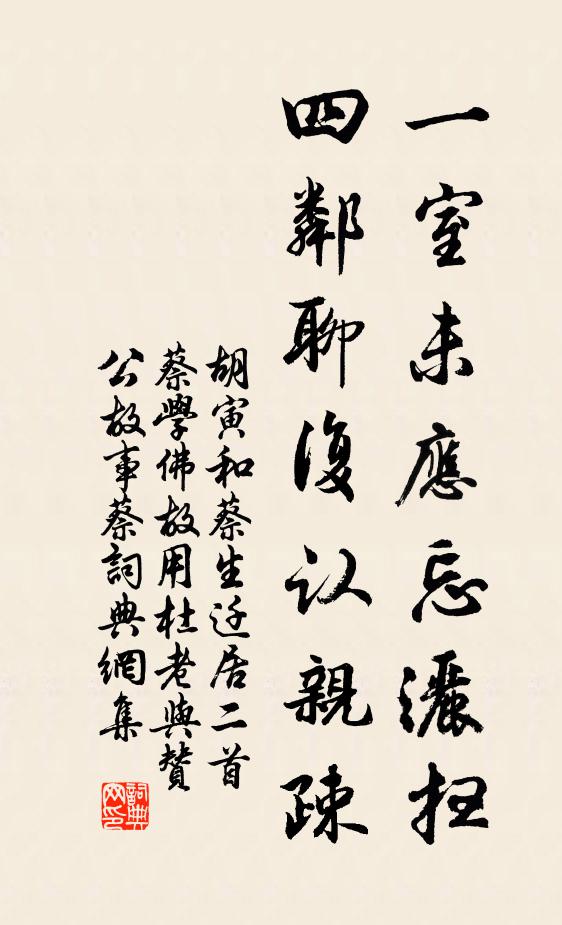 一室未應忘灑扫
四鄰聊復认親疎
胡寅和蔡生迁居二首
蔡學佛故用杜老與贊
公故事蔡詞典網集
詞典网印